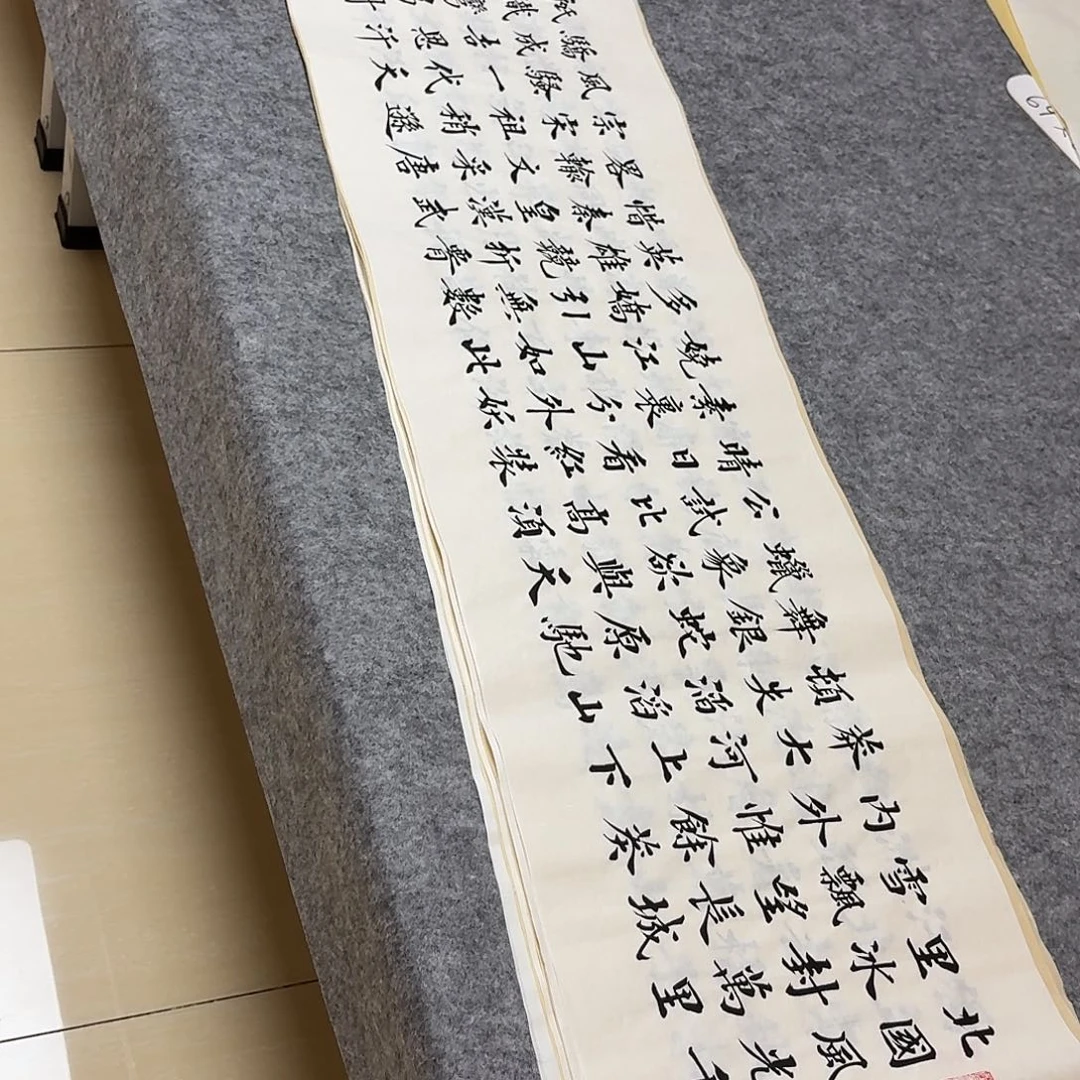 北國風光千
里冰封萬里
雪飄望長城
內外惟餘莽
莽大河上下
頓失滔滔山
舞銀蛇原馳
蠟象欲與天
公試比高須
晴日看紅裝
素裹分外妖
嬈江山如此
多嬌引無數
英雄競折腰
惜秦皇漢武
畧輸文采唐
宗宋祖稍遜
風騷一代天
驕成吉思汗
祇識彎
64